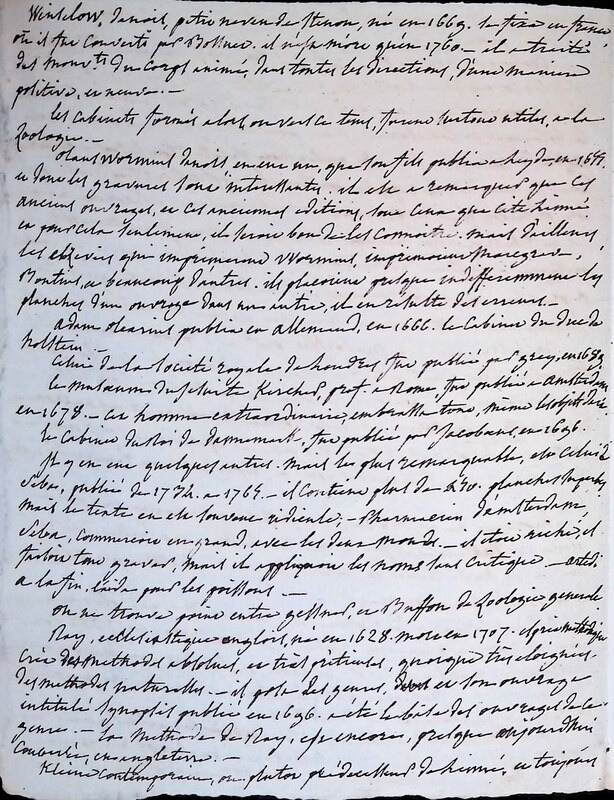 Winslow, danois, petit neveu de Stenon, né en 1669. se fixa en france
où il fut converti par Bossuet. il n'est mort qu'en 1760 – il a traité
des mouvts du corps animé, dans toutes les directions, d'une manière
positive, et neuve. –
les cabinets formés alors, ou vers ce tems, furent surtout utiles, a la
Zoologie. –
olaus Wormius danois en eut un, que son fils publia a leyde, en 1655.
et dont les gravures sont interessantes. il est a remarquer que ces
anciens ouvrages, et ces anciennes editions, sont ceux que cite Linné
et pour cela seulement, il seroit bon de les connoitre. mais d'ailleurs
les elzevirs qui imprimerent Wormius, imprimoient Margrave,
Bontius, et beaucoup d'autres. ils placoient presque indifferemment les
planches d'un ouvrage dans un autre, il en resulte des erreurs. –
adam olearius publia en allemand, en 1666. le Cabinet du duc de
holstein –
Celui de la Société royale de Londres fut publié par grew, en
le Musaeum du Jesuite Kircher, prof. a Rome fut publié a Amsterdam
en 1678. – cet homme extraordinaire, embrassa tout, même
le Cabinet du Roi de dannemark, fut publié par Jacobaeus, en 1696.
Il y en eut quelques autres. mais le plus remarquable, est celui de
Seba, publié de 1734. a 1765. – il contient plus de planches superbes
mais le texte en est souvent ridicule. – Pharmacien d'amsterdam,
Seba, commercoit en grand, avec les deux mondes. – il étoit riche, il
faisoit tout graver, mais il appliquoit les noms sans critique. – artedi
a la fin, l'aida pour les poissons. –
on ne trouve point entre gessner, et Buffon de Zoologie generale
Ray, ecclesiastique anglois, né en 1628. mort en 1707.
Crée des methodes absolues, et très quoique très eloignées
des methodes naturelles. – il posa des genres, et son ouvrage
intitulé Synopsis publié en 1696. a été la base des ouvrages de ce
genre. – la Methode de Ray, est encore, presque aujourd'hui
conservée, en angleterre. –
Klein contemporain, ou plutot predecesseur de Linné, et toujours